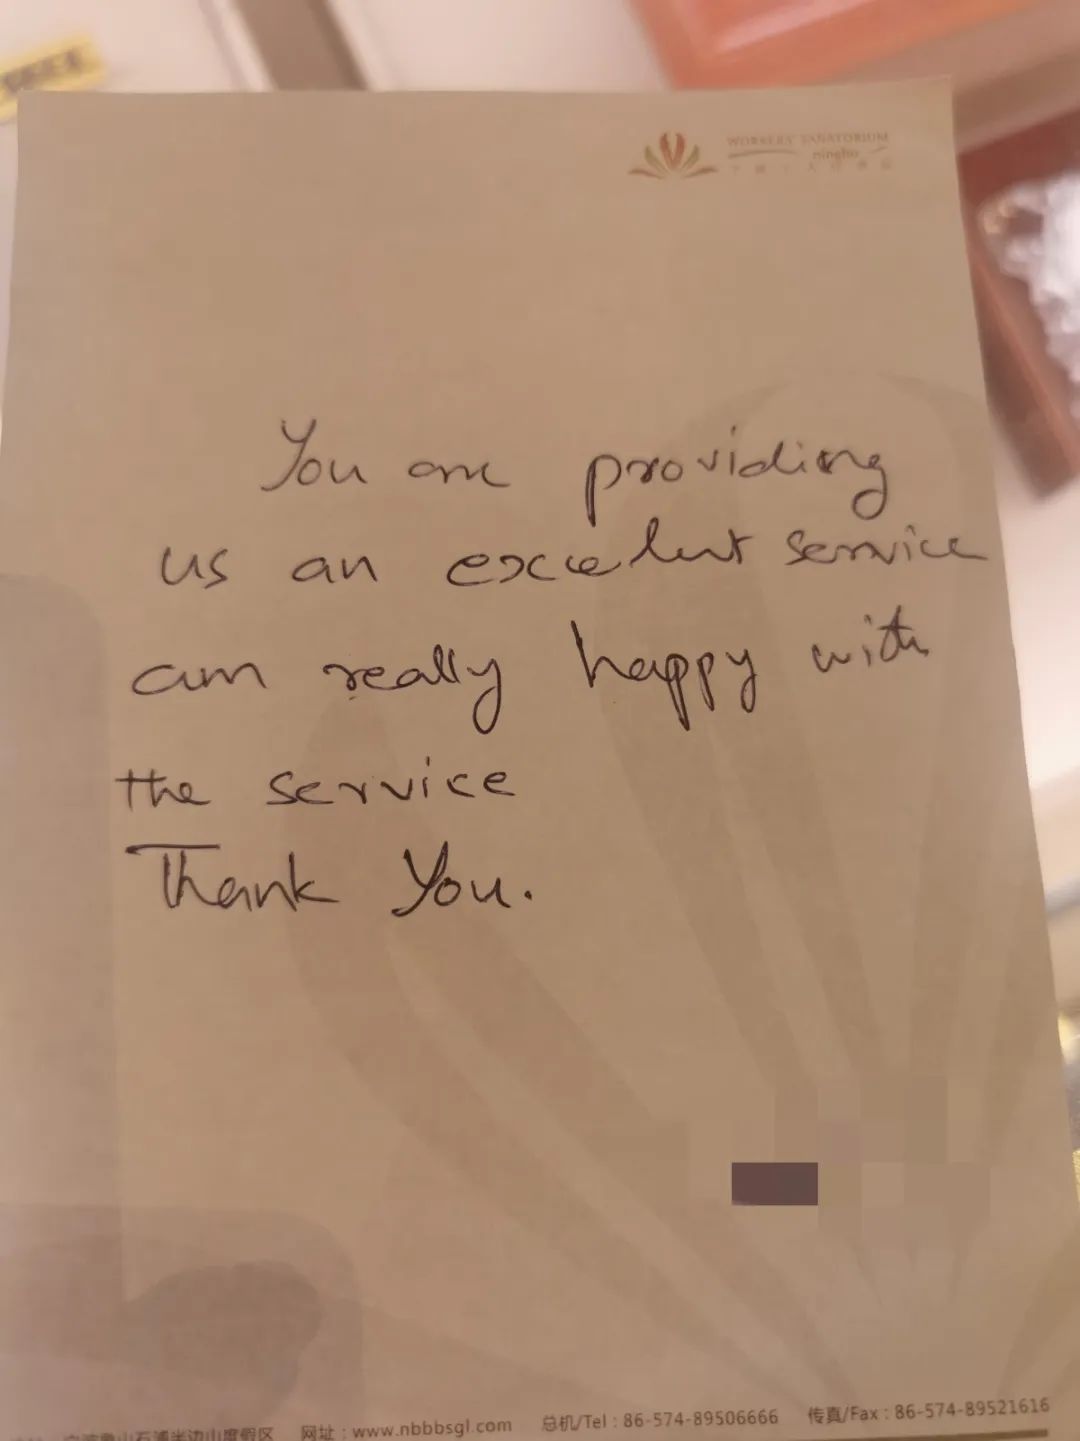 WORKERS' SANATORIUM
ningbo
You are providing
us an excelent service
am really happy with
the service
Thank You.
宁波象山石浦半边山度假区 网址:www.nbbbsgl.com 总机/Tel:86-574-89506666 传真/Fax:86-574-89521616